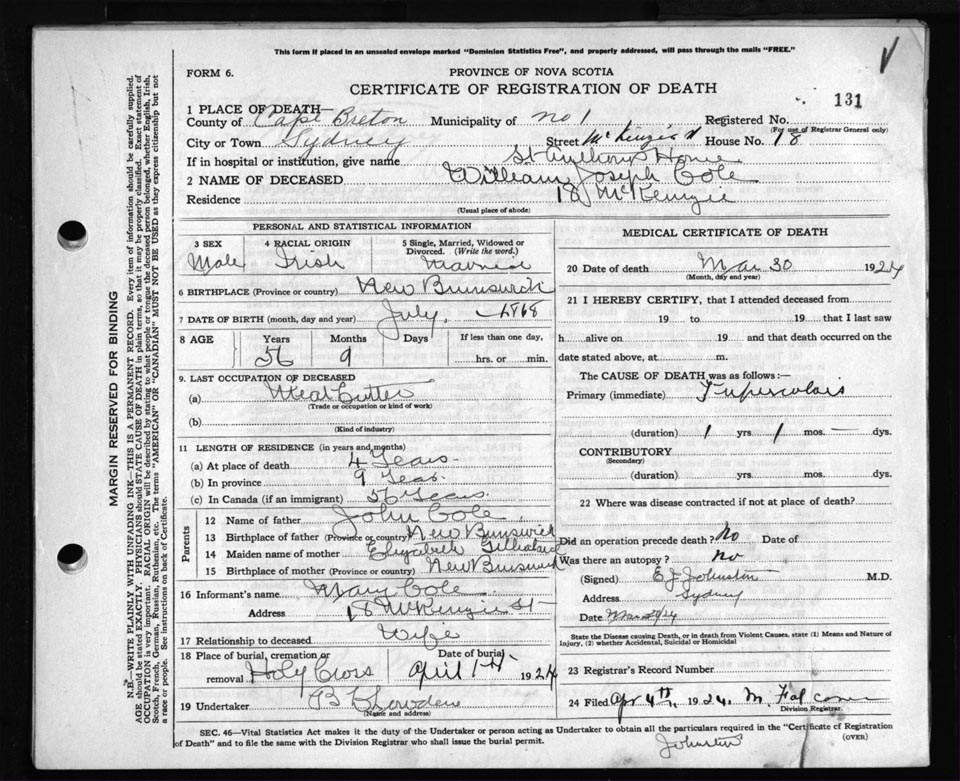 This form if placed in an unsealed envelope marked "Dominion Statistics Free", and properly addressed, will pass through the mails "FREE."
FORM 6.
PROVINCE OF NOVA SCOTIA
CERTIFICATE OF REGISTRATION OF DEATH
131
1 PLACE OF DEATH—
County of Cape Breton Municipality of No 1 Registered No.
(For use of Registrar General only)
City or Town Sydney Street McKenzie House No. 18
If in hospital or institution, give name St Anthony's Home
2 NAME OF DECEASED William Joseph Cole
Residence 18 McKenzie
(Usual place of abode)
PERSONAL AND STATISTICAL INFORMATION
3 SEX 4 RACIAL ORIGIN 5 Single, Married, Widowed or Divorced. (Write the word.)
Male Irish Married
6 BIRTHPLACE (Province or country) New Brunswick
7 DATE OF BIRTH (month, day and year) July, 1868
8 AGE Years Months Days If less than one day,
56 9 hrs. or min.
9. LAST OCCUPATION OF DECEASED
(a) Meat Cutter
(Trade or occupation or kind of work)
(b)
(Kind of industry)
11 LENGTH OF RESIDENCE (in years and months)
(a) At place of death 4 Years.
(b) In province 9 Years.
(c) In Canada (if an immigrant) 56 Years.
Parents
12 Name of father John Cole
13 Birthplace of father (Province or country) New Bunswick
14 Maiden name of mother Elizabeth
15 Birthplace of mother (Province or country) New Bunswick
16 Informant's name Mary Cole
Address 18 McKenzie St
17 Relationship to deceased Wife
18 Place of burial, cremation or removal Holy Cross Date of burial April 1st 1924
19 Undertaker
(Name and address)
MEDICAL CERTIFICATE OF DEATH
20 Date of death Mar 30 1924
(Month, day and year)
21 I HEREBY CERTIFY, that I attended deceased from
19 to 19 that I last saw
h alive on 19 and that death occurred on the
date stated above, at m.
The CAUSE OF DEATH was as follows:—
Primary (immediate) Tuperculais
(duration) 1 yrs. 1 mos. — dys.
CONTRIBUTORY
(Secondary)
(duration) yrs. mos. dys.
22 Where was disease contracted if not at place of death?
Did an operation precede death? No Date of
Was there an autopsy? no
(Signed) E J Johnston M.D.
Address Sydney
Date
State the Disease causing Death, or in death from Violent Causes, state (1) Means and Nature of Injury, (2) whether Accidental, Suicidal or Homicidal
23 Registrar's Record Number
24 Filed Apr 4th, 1924. M. Falconer
Division Registrar.
SEC. 46—Vital Statistics Act makes it the duty of the Undertaker or person acting as Undertaker to obtain all the particulars required in the "Certificate of Registration
of Death" and to file the same with the Division Registrar who shall issue the burial permit.
(OVER)
Johnston
MARGIN RESERVED FOR BINDING
N.B.—WRITE PLAINLY WITH UNFADING INK—THIS IS A PERMANENT RECORD. Every item of information should be carefully supplied.
AGE should be stated EXACTLY. PHYSICIANS should STATE CAUSE OF DEATH in plain terms, so that it may be properly classified. Exact statement of
OCCUPATION is very important. RACIAL ORIGIN will be described by stating to what people or tongue the deceased person belonged, whether English, Irish,
Scotch, French, German, Russian, Ruthenian, etc. The terms "AMERICAN" OR "CANADIAN" MUST NOT BE USED as they express citizenship but not
a race or people. See instructions on back of Certificate.